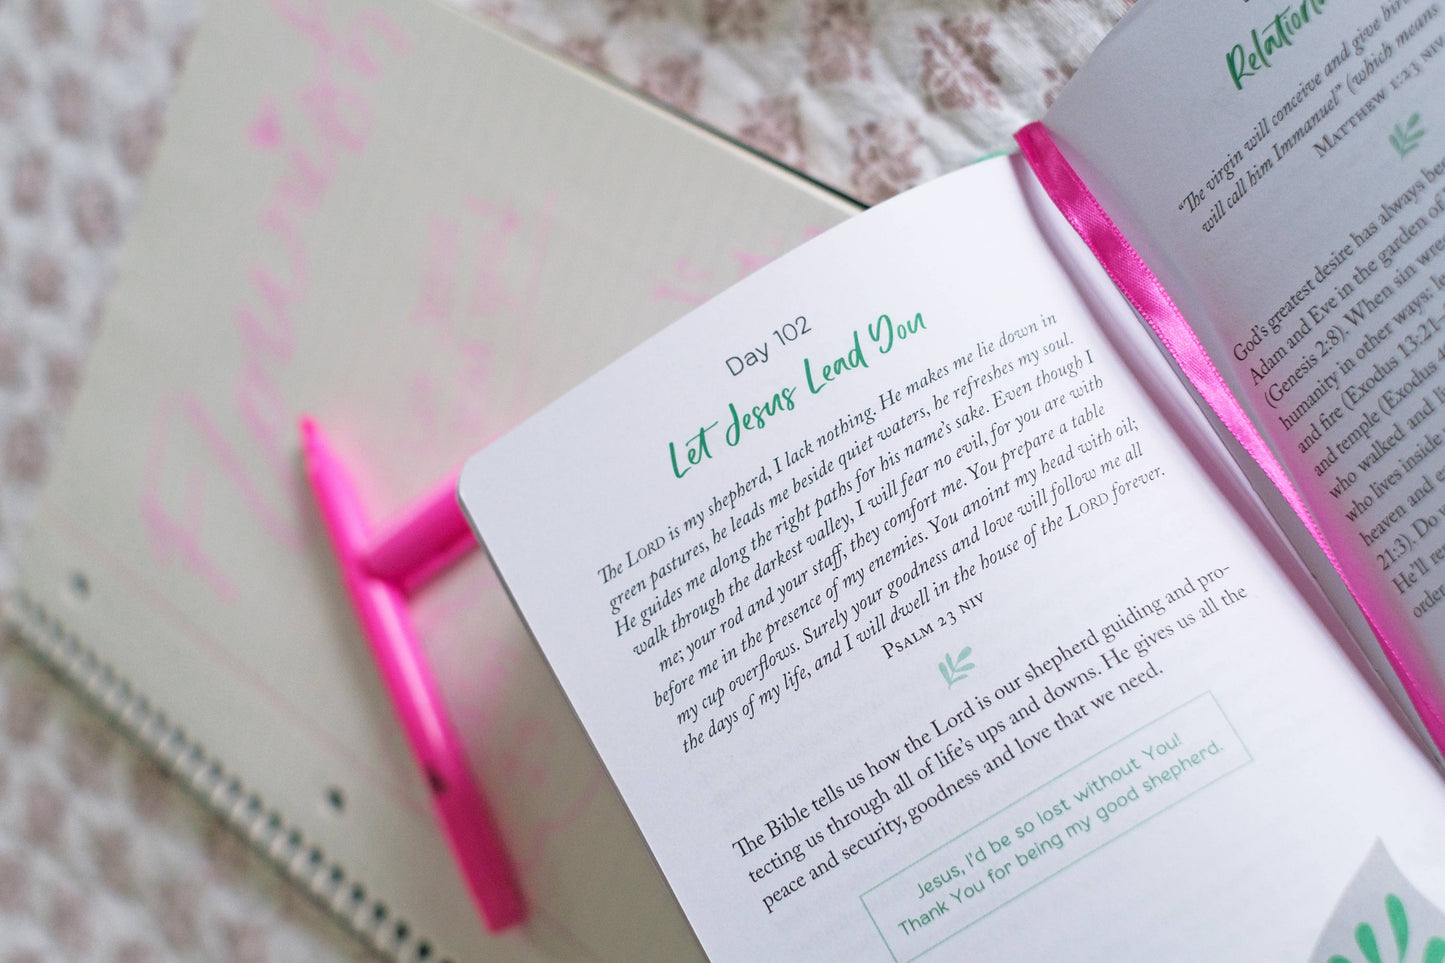 Flourish
Day 102
Let Jesus Lead You
The LORD is my shepherd, I lack nothing. He makes me lie down in
green pastures, he leads me beside quiet waters, he refreshes my soul.
He guides me along the right paths for his name's sake. Even though I
walk through the darkest valley, I will fear no evil, for you are with
me; your rod and your staff, they comfort me. You prepare a table
before me in the presence of my enemies. You anoint my head with oil;
my cup overflows. Surely your goodness and love will follow me all
the days of my life, and I will dwell in the house of the LORD forever.
PSALM 23 NIV
The Bible tells us how the Lord is our shepherd guiding and pro-
tecting us through all of life's ups and downs. He gives us all the
peace and security, goodness and love that we need.
Jesus, I'd be so lost without You!
Thank You for being my good shepherd.
"The virgin will conceive and give
will call him Immanuel" (which means
MATTHEW 1:23 NIV
God's greatest desire has always
Adam and Eve in the garden of
(Genesis 2:8). When sin
humanity in other ways:
and fire (Exodus 13:21–
and temple (Exodus
who walked and
who lives inside
heaven and
21:3). Do
He'll